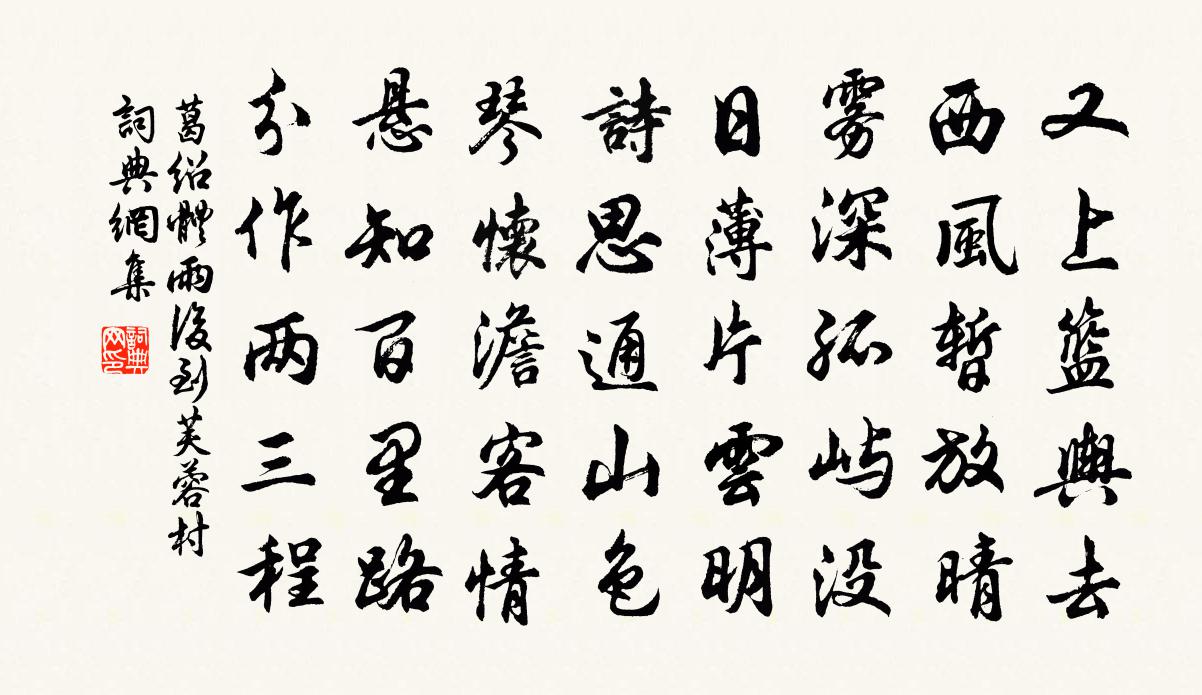 又上籃輿去
西風暫放晴
雾深孤屿没
日薄片雲明
詩思通山色
琴懷澹客情
悬知百里路
分作两三程
葛绍體雨後到芙蓉村
詞典網集
詞典网印